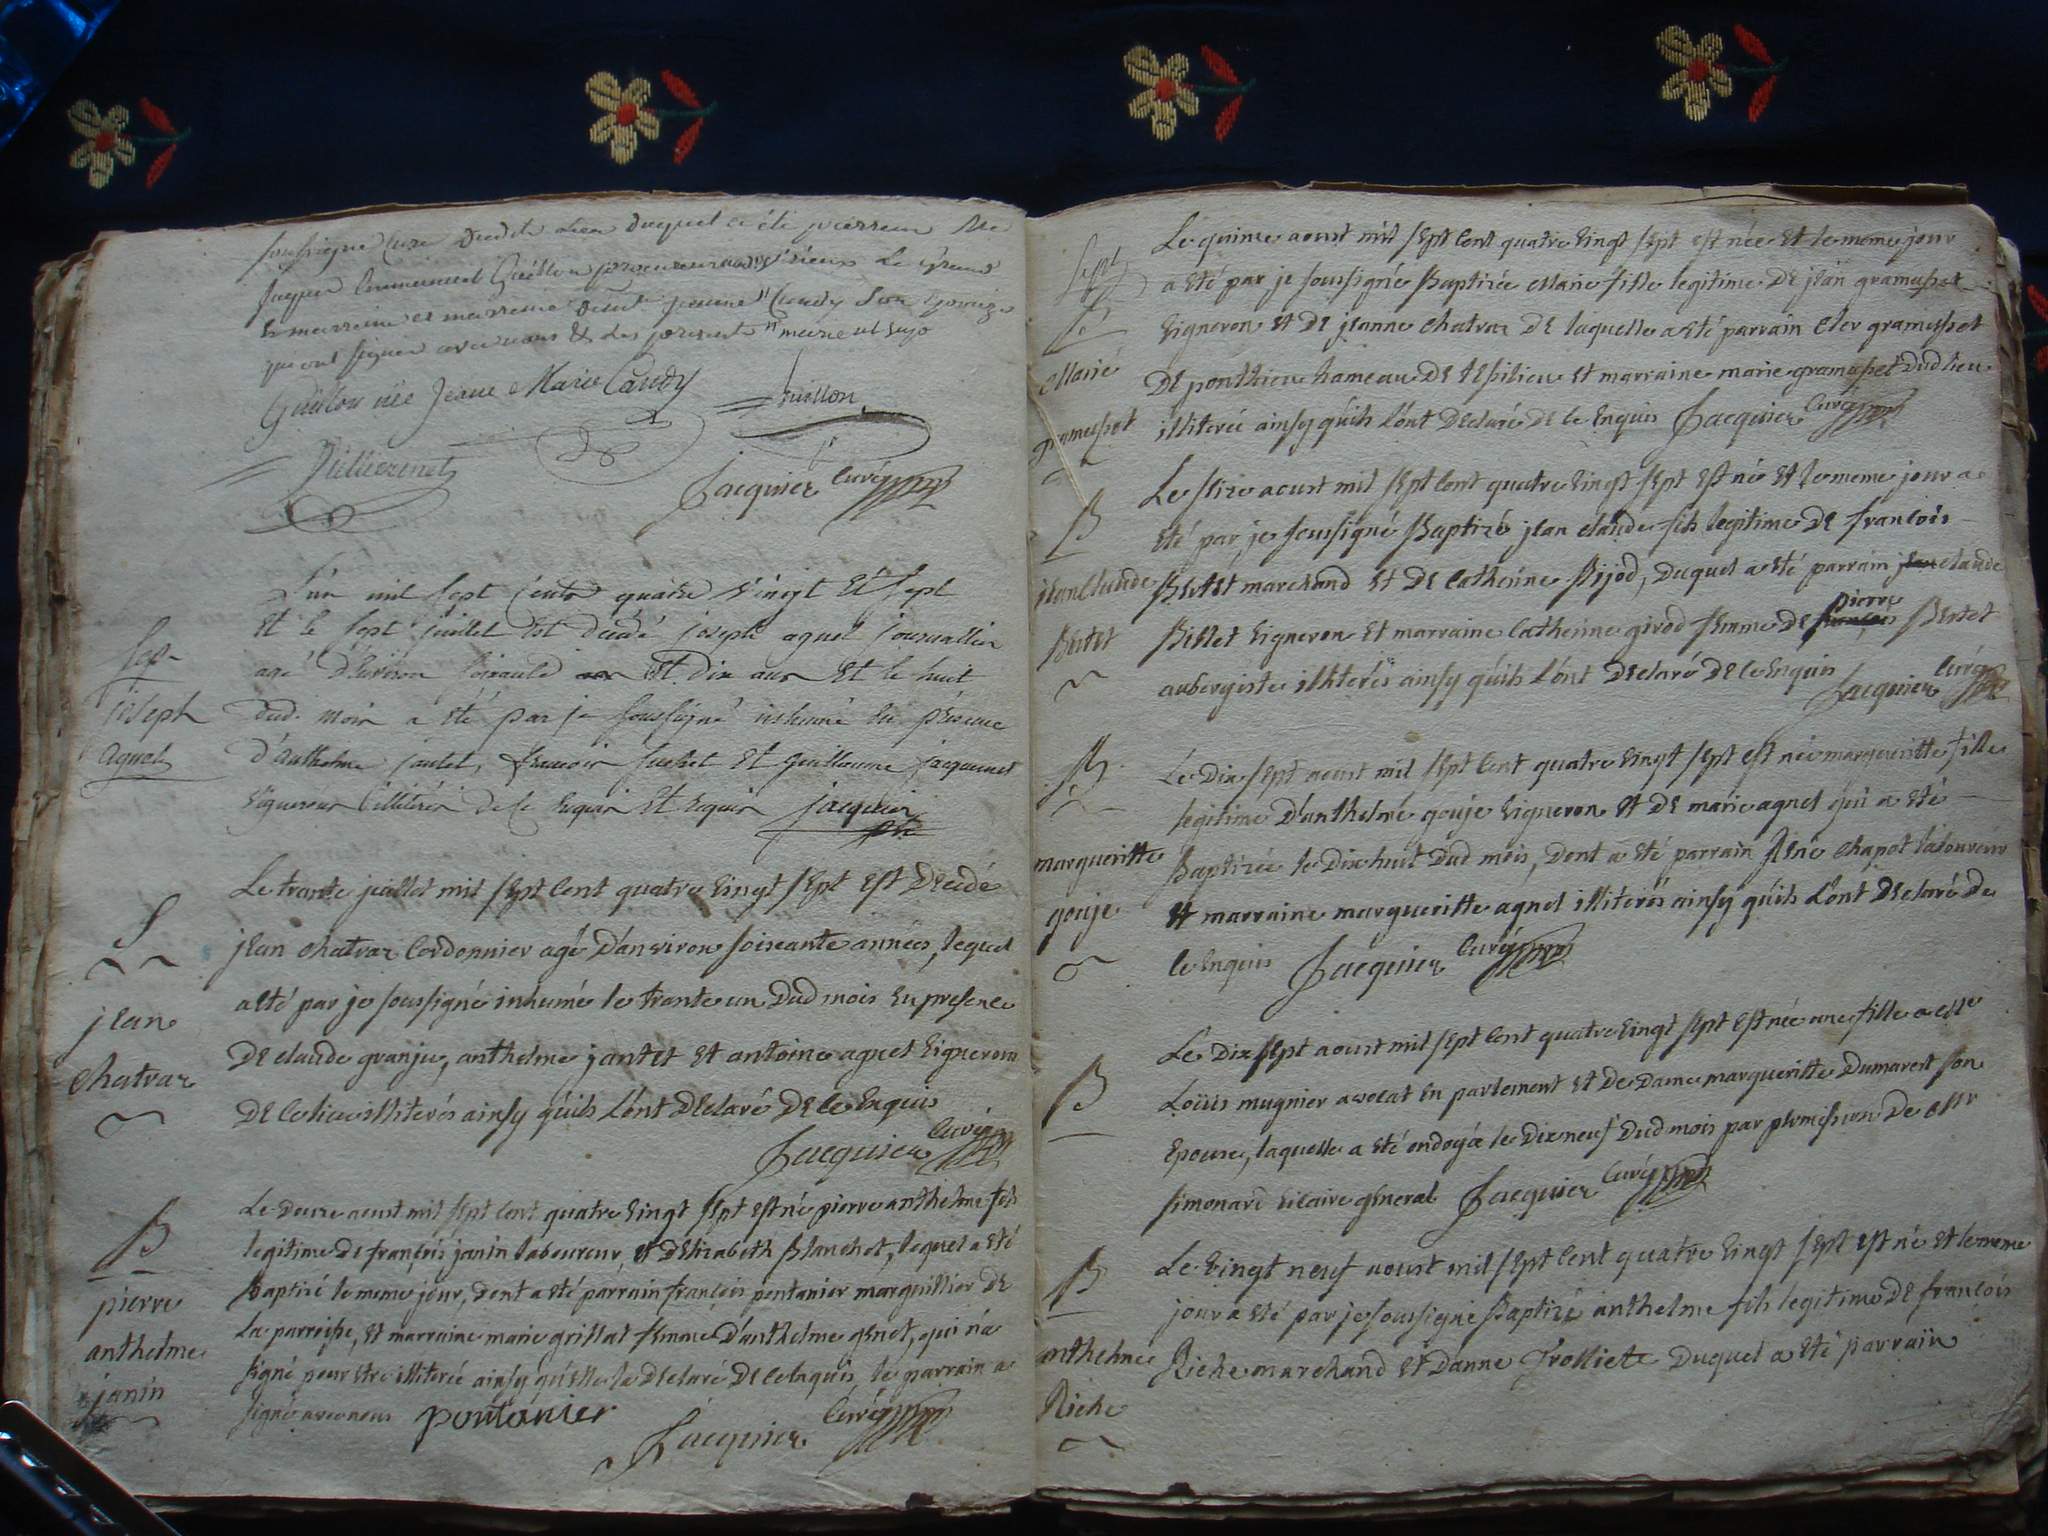 soussigné curé dud lieu duquel a été parrain
Jacques Emmanuel Guillon procureur
la marraine jeanne Candy
qui ont signé avec nous
Guillon née Jeane Marie Candy
Guillon
Jacquier Curé
L'an mil sept cents quatre vingt et sept
et le sept juillet est decédé joseph agnel journallier
agé d'environ soixante et dix ans et le huit
dud. mois a été par je soussigné inhumé en présence
d'anthelme jantet, françois suchet et guillaume jacquemet
vignerons illiterés de ce enquis et requis jacquier
ptre
Sep.
joseph
agnel
Le trante juillet mil sept cent quatre vingt sept est decedé
jean chatvar cordonnier agé d'anviron soixante années, lequel
a été par je soussigné inhumé le trante un dud mois en presence
de claude granju, anthelme jantet et antoine agnel vignerons
de ce lieu illiterés ainsy qu'ils l'ont declaré de ce enquis
Jacquier Curé
S
jean
chatvar
Le douze aoust mil sept cent quatre vingt sept est né pierre anthelme fils
legitime de françois janin laboureur, et d'Elizabeth Blanchet, lequel a été
baptizé le meme jour, dont a été parrain françois pontanier marguillier de
la parroisse, et marraine marie grillat femme d'anthelme genet, qui n'a
signé pour etre illiterée ainsy qu'elle l'a declaré de ce enquis, le parrain a
signé avec nous pontanier
Jacquier Curé
B
pierre
anthelme
janin
Le quinze aoust mil sept cent quatre vingt sept est née et le meme jour
a été par je soussigné Baptizée Marie fille legitime de jean gramusset
vigneron et de jeanne chatvar de laquelle a été parrain cler gramusset
de ponthieu hameau de et marraine marie gramusset dud lieu
illiterés ainsy qu'ils l'ont declaré de ce enquis Jacquier Curé
Sept
B
Marie
gramusset
Le seize aoust mil sept cent quatre vingt sept est né et le meme jour a
été par je soussigné Baptizé jean claude fils legitime de françois
Bertet marchand et de Catherine Bijod, duquel a été parrain jean claude
Billet vigneron et marraine Catherine girod femme de pierre Bertet
aubergiste illiterés ainsy qu'ils l'ont declaré de ce enquis Jacquier Curé
B
jean Claude
Bertet
Le dix sept aoust mil sept cent quatre vingt sept est née margueritte fille
legitime d'anthelme gouje vigneron et de marie agnel qui a été
Baptizée le dix huit dud mois, dont a été parrain René chapot laboureur
et marraine margueritte agnel illiterés ainsy qu'ils l'ont declaré de
ce enquis Jacquier Curé
B
margueritte
gouje
Le dix sept aoust mil sept cent quatre vingt sept est née une fille a Mr
Louis mugnier avocat en parlement et de dame margueritte Dumarest son
epouse, laquelle a été ondoyée le dix neuf dud mois par permission de Mr
simonard vicaire general Jacquier Curé
B
Le vingt neuf aoust mil sept cent quatre vingt sept est né et le meme
jour a été par je soussigné Baptizé anthelme fils legitime de françois
Riche marchand et d'anne Trolliet duquel a été parrain
B
anthelme
Riche